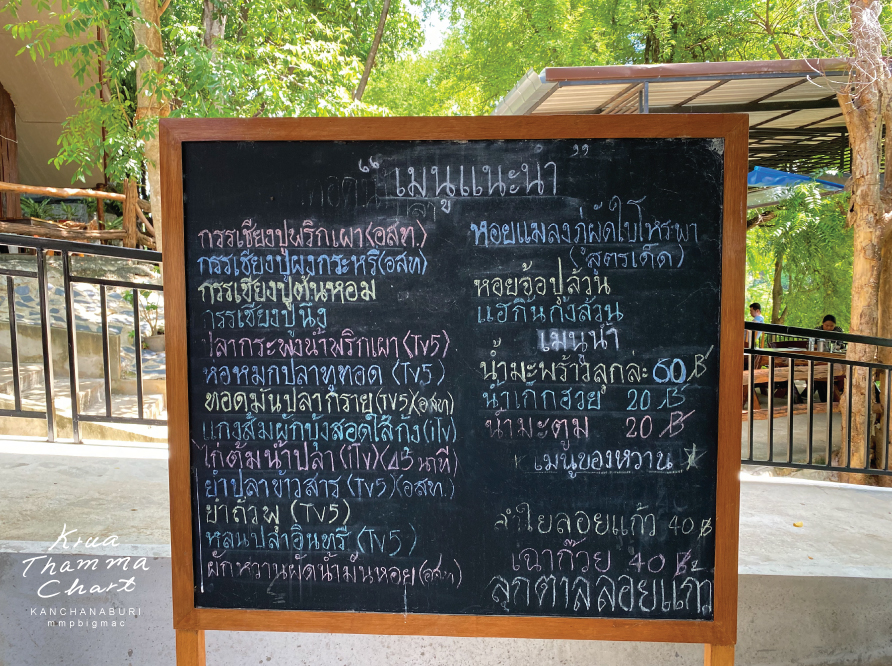 “เมนูแนะนำ”
กรรเชียงปูพริกเผา(อสท.)
กรรเชียงปูผงกระหรี่(อสท)
กรรเชียงปูต้นหอม
กรรเชียงปูนึ่ง
ปลากระพงน้ำพริกเผา(TV5)
ห่อหมกปลาทูทอด (TV5)
ทอดมันปลากราย(TV5)(อสท)
แกงส้มผักบุ้งสอดไส้กุ้ง(iTV)
ไก่ต้มน้ำปลา(iTV)(45นาที)
ยำปลาข้าวสาร(TV5)(อสท.)
ยำถั่วพู (TV5)
หลนปลาอินทรี (TV5)
ผักหวานผัดน้ำมันหอย(อสท)
หอยแมลงภู่ผัดใบโหระพา
(สูตรเด็ด)
หอยจ้อปูล้วน
แฮ่กึ๊นกุ้งล้วน
เมนูน้ำ
น้ำมะพร้าวลูกละ 60฿
น้ำเก๊กฮวย 20฿
น้ำมะตูม 20฿
เมนูของหวาน
ลำใยลอยแก้ว 40฿
เฉาก๊วย 40฿
ลูกตาลลอยแก้ว
Krua
Thamma
Chart
KANCHANABURI
mmpbigmac